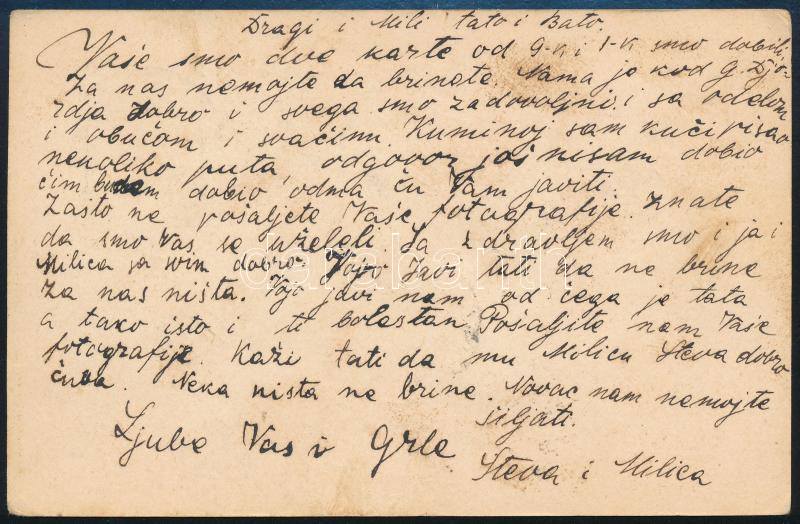 Dragi i Mili tato i Bato.
Vaše smo dve karte od 9-X i 1-X smo dobili.
Za nas nemojte da brinete. Nama je kod G. Djor-
dja dobro i svega smo zadovoljni i sa odelom
i obućom i svačim. Kuminoj sam kući pisao
nekoliko puta, odgovor još nisam dobio
čim budem dobio odma ću Vam javiti.
Zašto ne pošaljete Vaše fotografije. Znate
da smo Vas se uželeli. Sa zdravljem smo i ja i
Milica sa svim dobro. Vojo Javi tati da ne brine
za nas ništa. Vojo javi nam od čega je tata
a tako isto i ti bolestan Pošaljite nam Vaše
fotografije. Kaži tati da mu Milicu Steva dobro
čuva. Neka ništa ne brine. Novac nam nemojte
šiljati.
Ljube Vas i Grle
Steva i Milica
darabanth